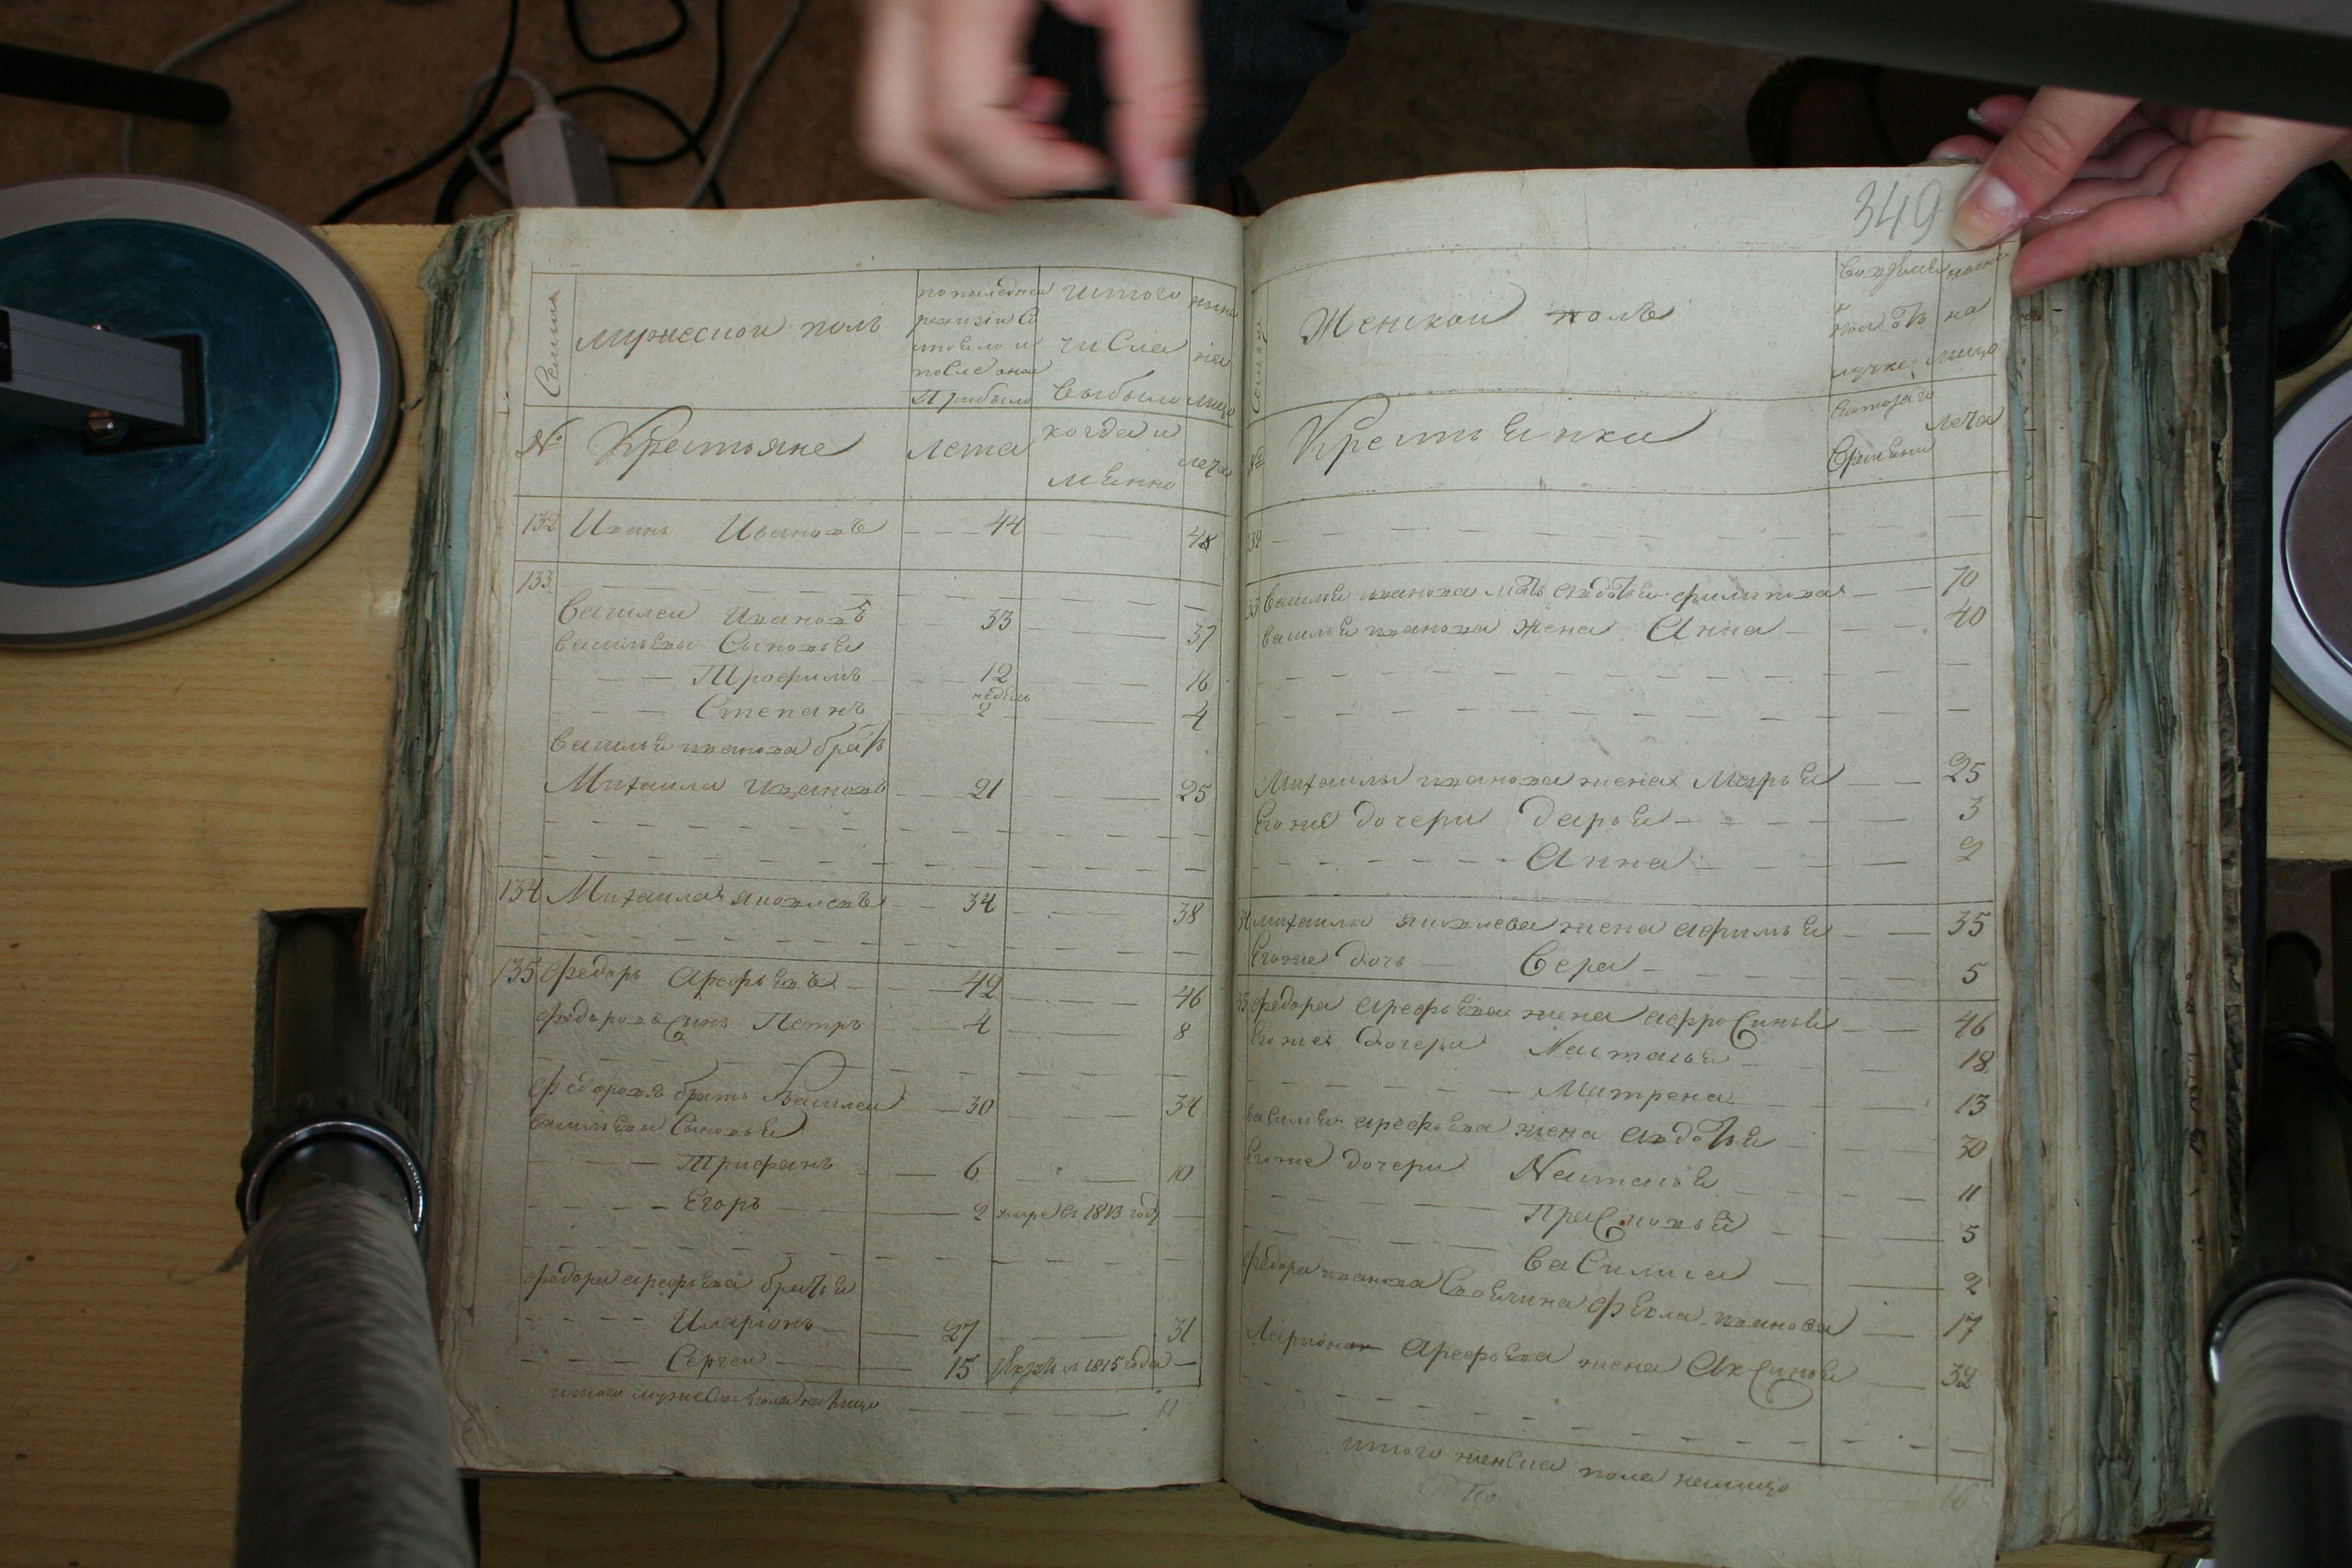 349
Семьи
мужескои полъ
по последнеи
ревизіи со
стояло и
после онои
прибыло
изтого
числа
выбыло
ныне
на
лицо
№
Крестьяне
лета
когда и
мѣнно
лета
132 Иванъ Ивановъ 44 48
133
Василеи Ивановъ 33 37
васильевы Сыновья
Трофимъ 12 16
недель
Степанъ 2 4
василья иванова братъ
Михаила Ивановъ 21 25
134 Михаила яковлевъ 34 38
135 Федоръ Арефьевъ 42 46
Федоровъ Сынъ Петръ 4 8
Федоровъ братъ Василеи 30 34
васильевы Сыновья
Трифанъ 6 10
Егоръ 2 умре въ 1813 году
Федора арефьева братья
Иларіонъ 27 31
Сергеи 15 1815 года
итого мужеска пола налицо 11
Женскои полъ
лицо
№
Крестьянки
времяни
лета
132
133 василья иванова мать авдотья филипова 70
василья иванова жена Анна 40
Михаилы иванова жена Марья 25
Егоже дочери Дарья 3
Анна 2
34 михаила яковлева жена афимья 35
Егоже дочь Вера 5
35 федора арефьева жена аффросинья 46
Егоже дочери Наталья 18
Матрена 13
василья арефьева жена авдотья 30
Егоже дочери Наталья 11
Прасковья 5
василиса 2
федора иванова Своячина Фѣкла иванова 17
Ларионa Арефьева жена Аксинья 32
итого женска пола налицо 16